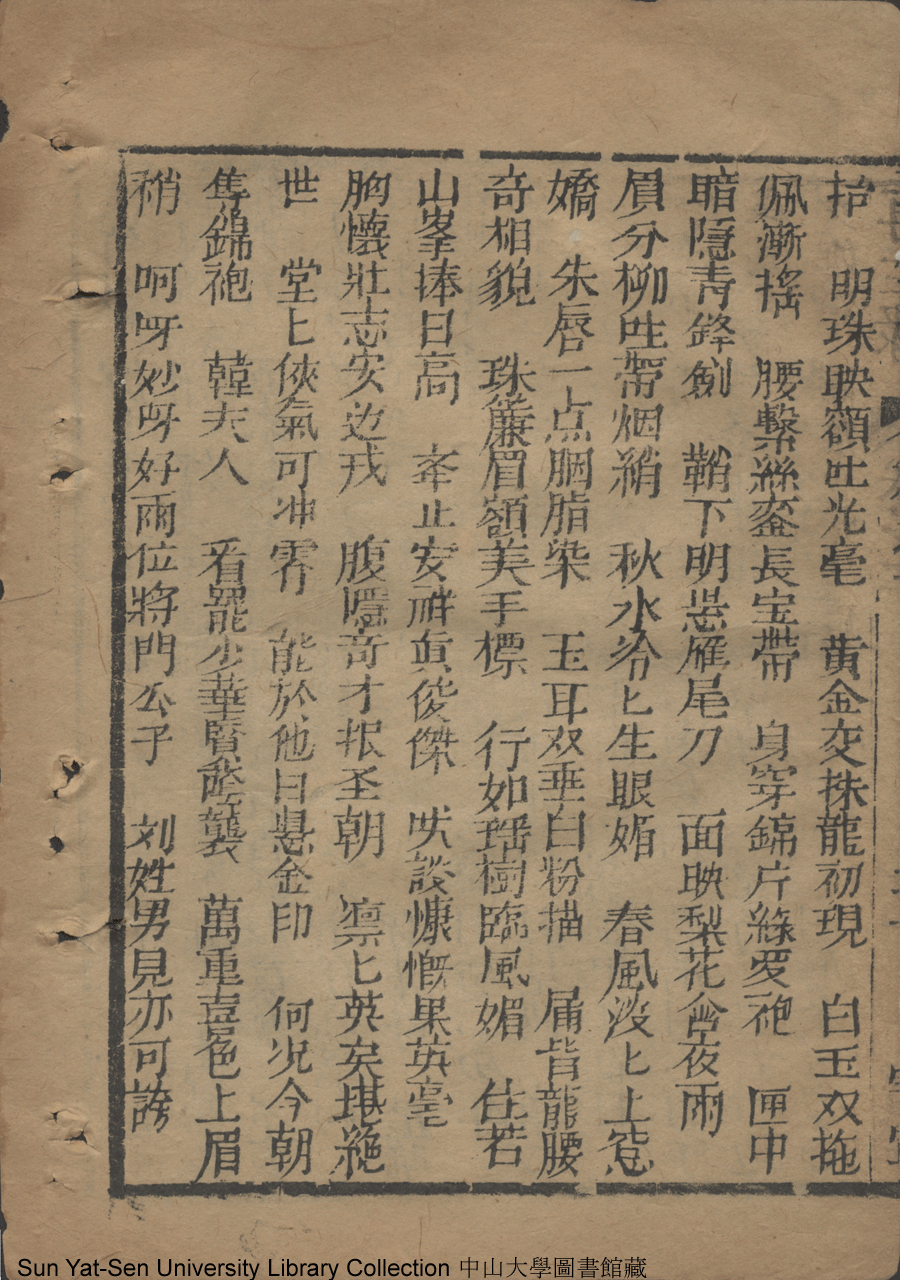 抬　明珠映額吐光毫　黄金交抹龍初現　白玉双拖
佩漸摇　腰繫絲鸾長宝帶　身穿錦片綉　袍　匣中
暗隱青鋒劍　鞘下明悬雁尾刀　面映梨花含夜雨
眉分柳吐帶烟綃　秋水冷匕生眼媚　春風淡匕上
嬌　朱唇一点胭脂染　玉耳双垂白粉描　　背龍腰
奇相貌　珠簾眉額美手標　行如瑶樹臨風媚　住若
山峯捧日高　举止安祥真俊傑　笑談慷慨果英毫
胸懷壯志安边戎　腹隱奇才报圣朝　凛匕英矣堪絶
世　堂匕俠氣可冲霄　能於他日悬金印　何况今朝
隽錦袍　韓夫人　看罷少華賢　襲　萬重喜色上眉
稍　呵呀妙呀好兩位將門公子　刘姓男見亦可誇
Sun Yat-Sen University Library Collection 中山大學圖書館藏